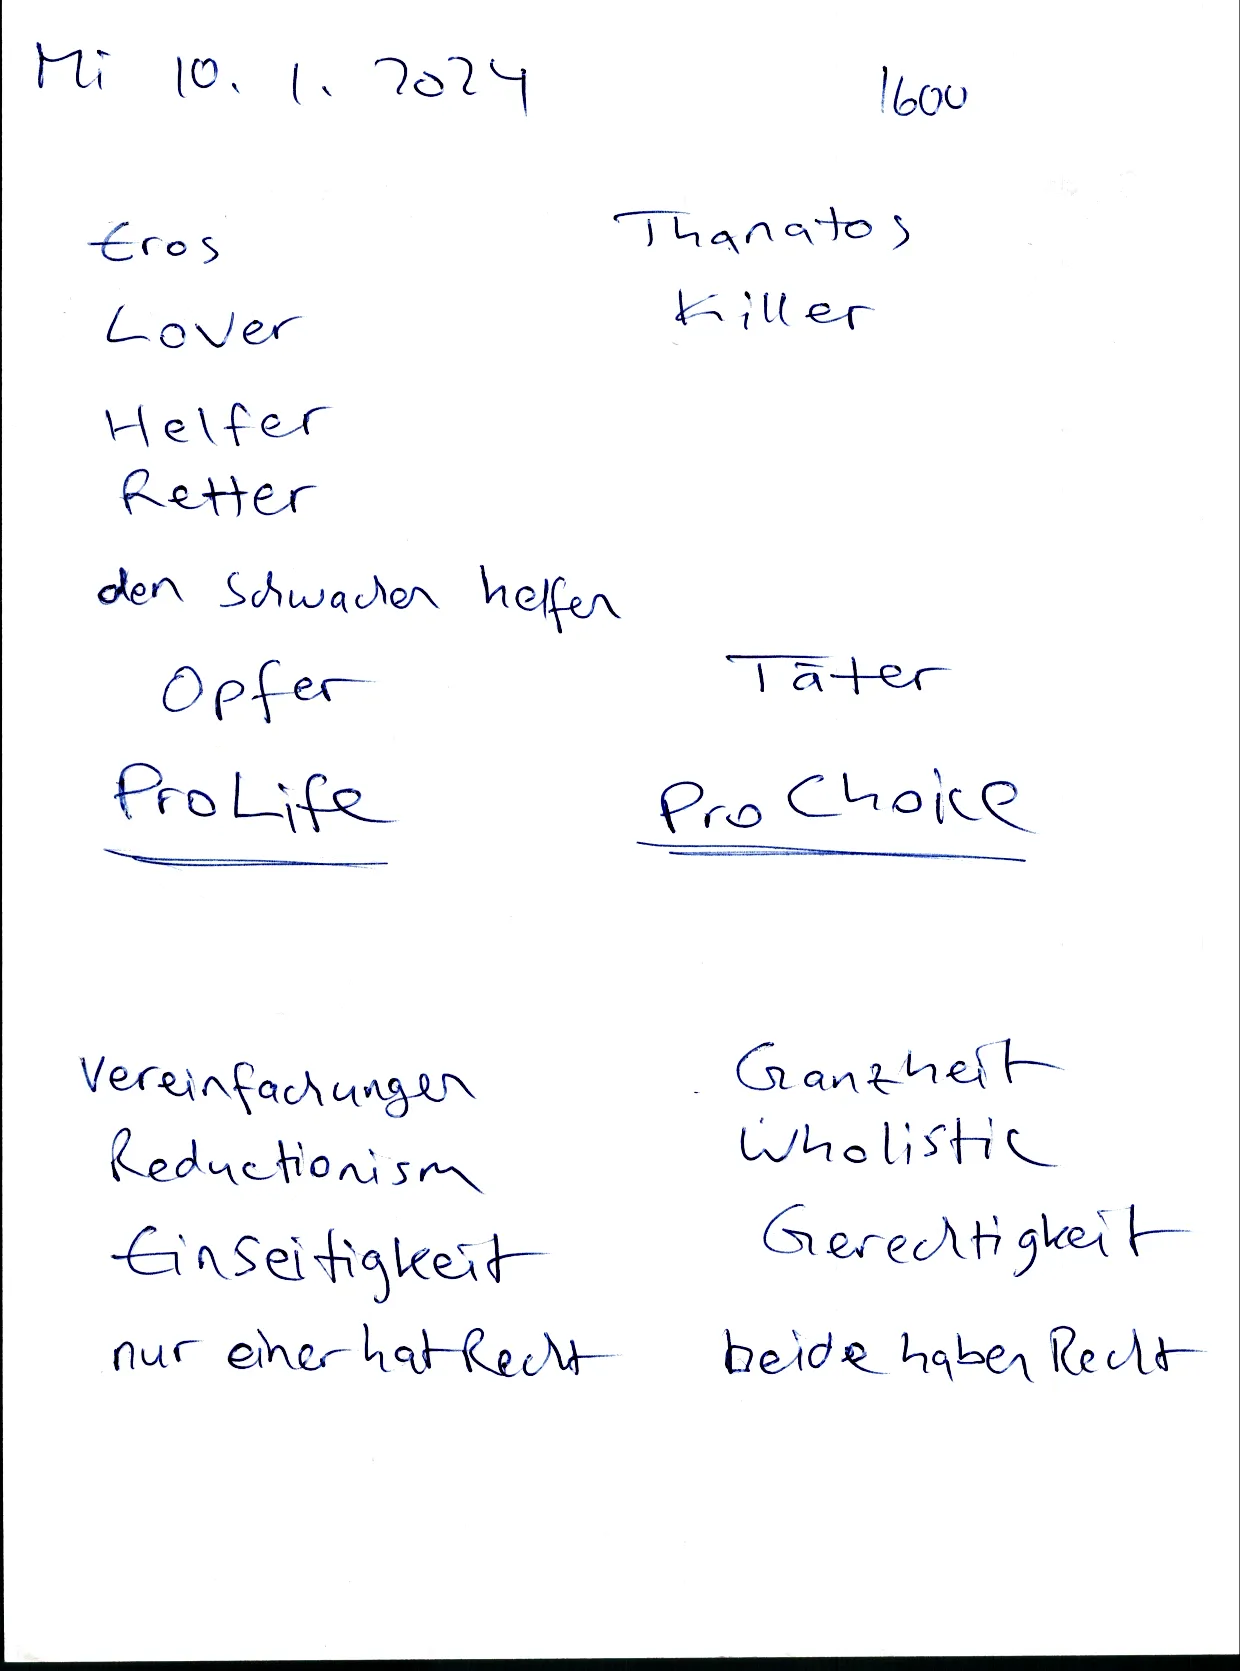 Mi 10. 1. 2024 1600
Eros Thanatos
Lover Killer
Helfer
Retter
den Schwachen helfen
Opfer Täter
ProLife Pro Choice
Vereinfachungen Ganzheit
Reductionism wholistic
Einseitigkeit Gerechtigkeit
nur einer hat Recht beide haben Recht